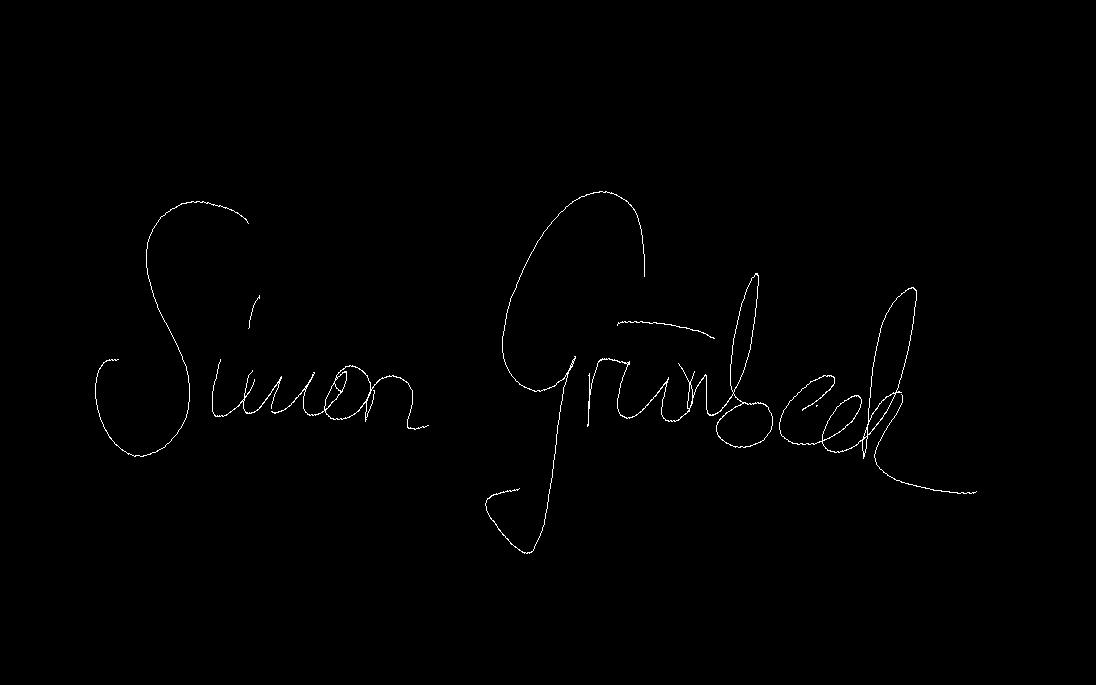 Simon Grünbeck